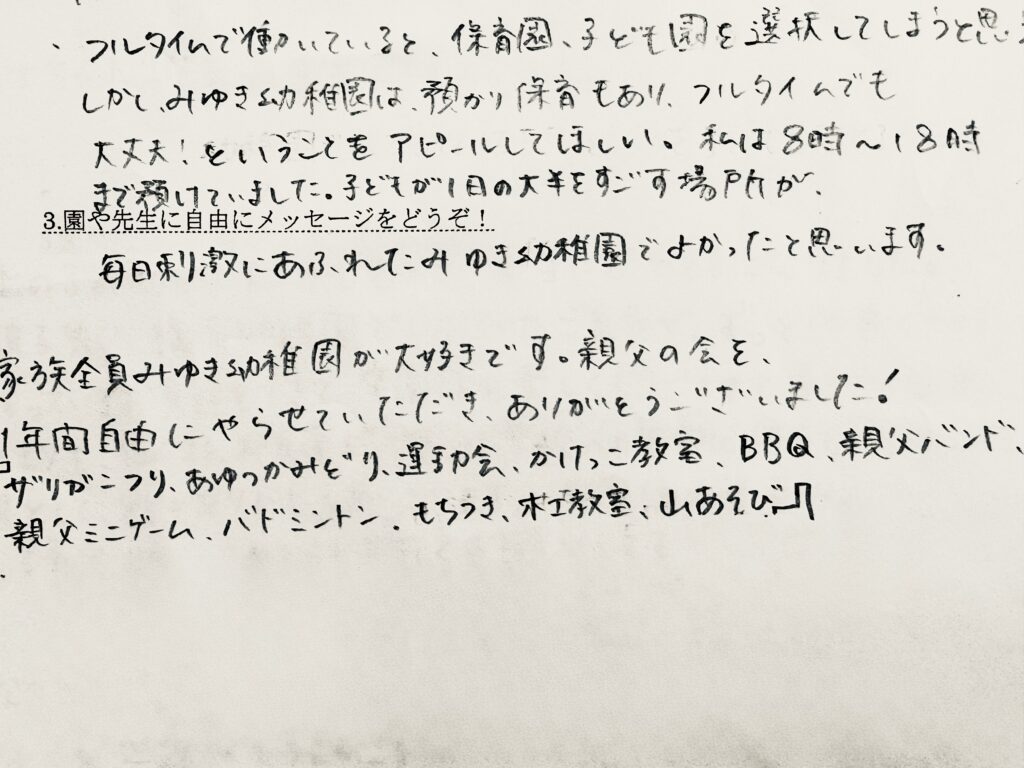 ・フルタイムで働いていると、保育園、子ども園を選択してしまうと思
しかし、みゆき幼稚園は、預かり保育もあり、フルタイムでも
大丈夫！ということをアピールしてほしい。私は8時〜18時
まで預けていました。子どもが1日の大半をすごす場所が、
3.園や先生に自由にメッセージをどうぞ！
毎日刺激にあふれたみゆき幼稚園でよかったと思います。
家族全員みゆき幼稚園が大好きです。親父の会を、
1年間自由にやらせていただき、ありがとうございました！
ザリガニつり、あゆつかみどり、運動会、かけっこ教室、BBQ、親父バンド、
親父ミニゲーム、バドミントン、もちつき、木工教室、山あそび、